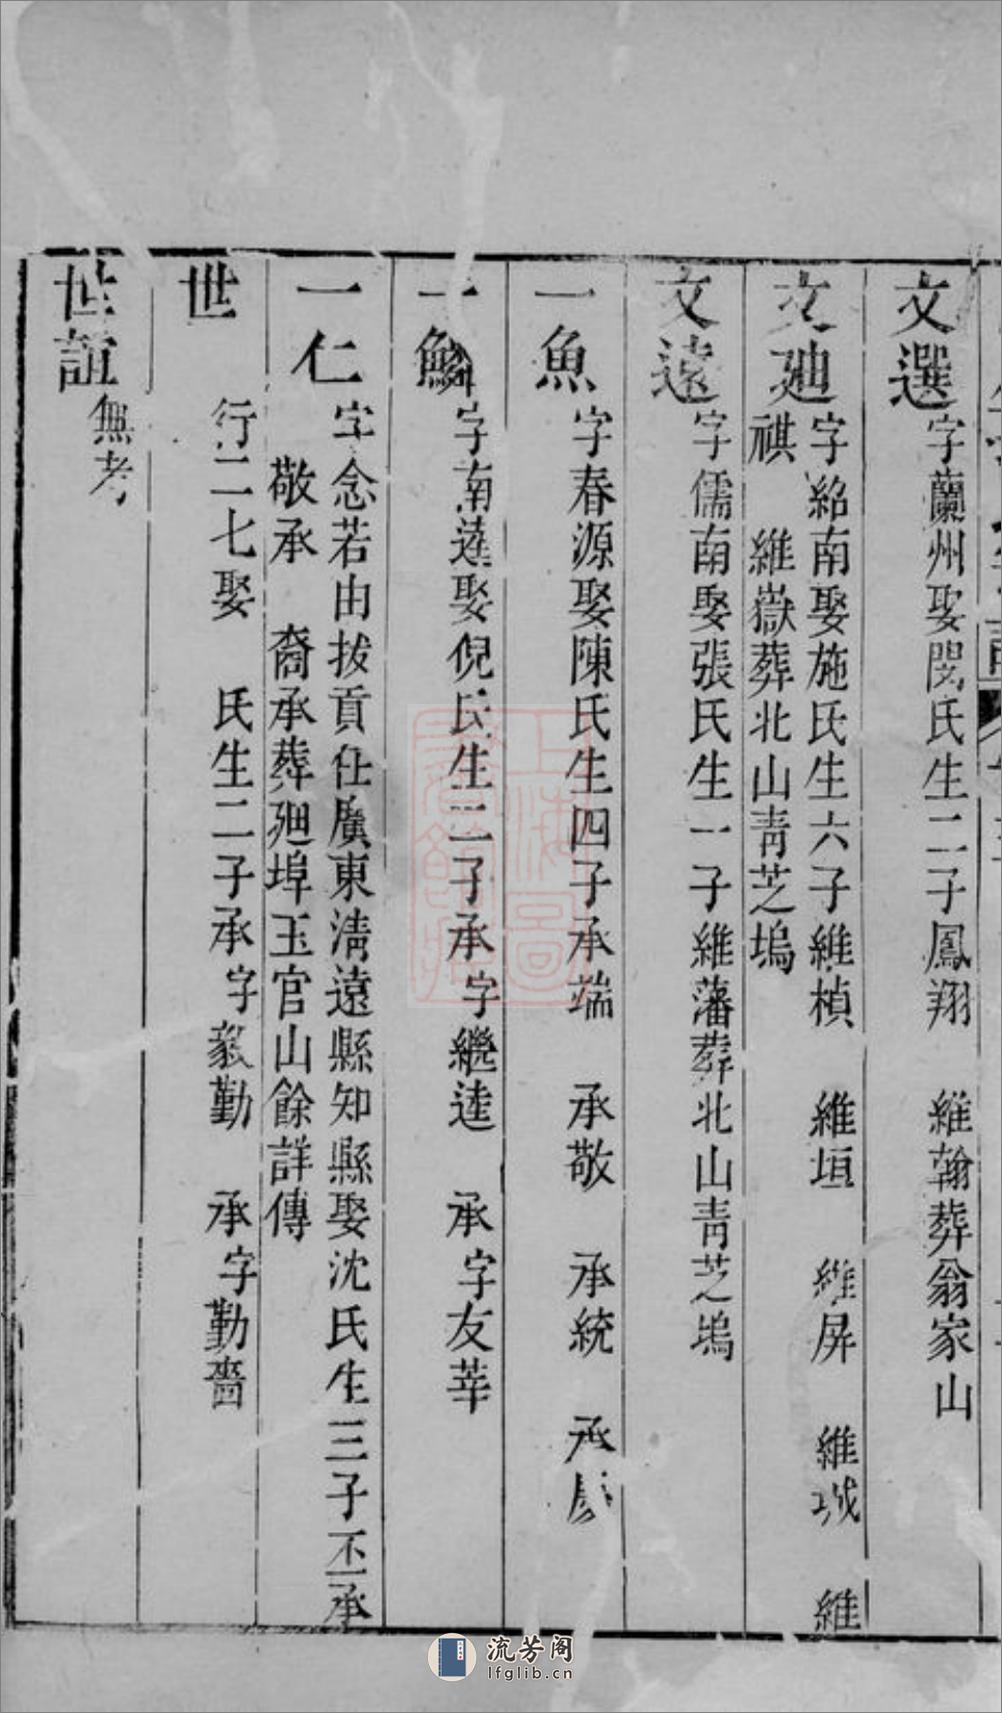 文選 字蘭州娶閔氏生二子鳳翔 維翰葬翁家山
文廸 字紹南娶施氏生六子維楨 維垣 維屏 維城 維
祺 維嶽葬北山靑芝塢
文遠 字儒南娶張氏生一子維藩葬北山靑芝塢
一魚 字春源娶陳氏生四子承端 承敬 承統 承彥
一鱗 字南逵娶倪氏生二子承字繼逵 承字友莘
一仁 字念若由拔貢仕廣東淸遠縣知縣娶沈氏生三子丕承
敬承 裔承葬廻埠玉官山餘詳傳
世 行二七娶 氏生二子承字毅勤 承字勤嗇
世誼 無考
上海圖
書館藏
流芳阁
lfglib.cn